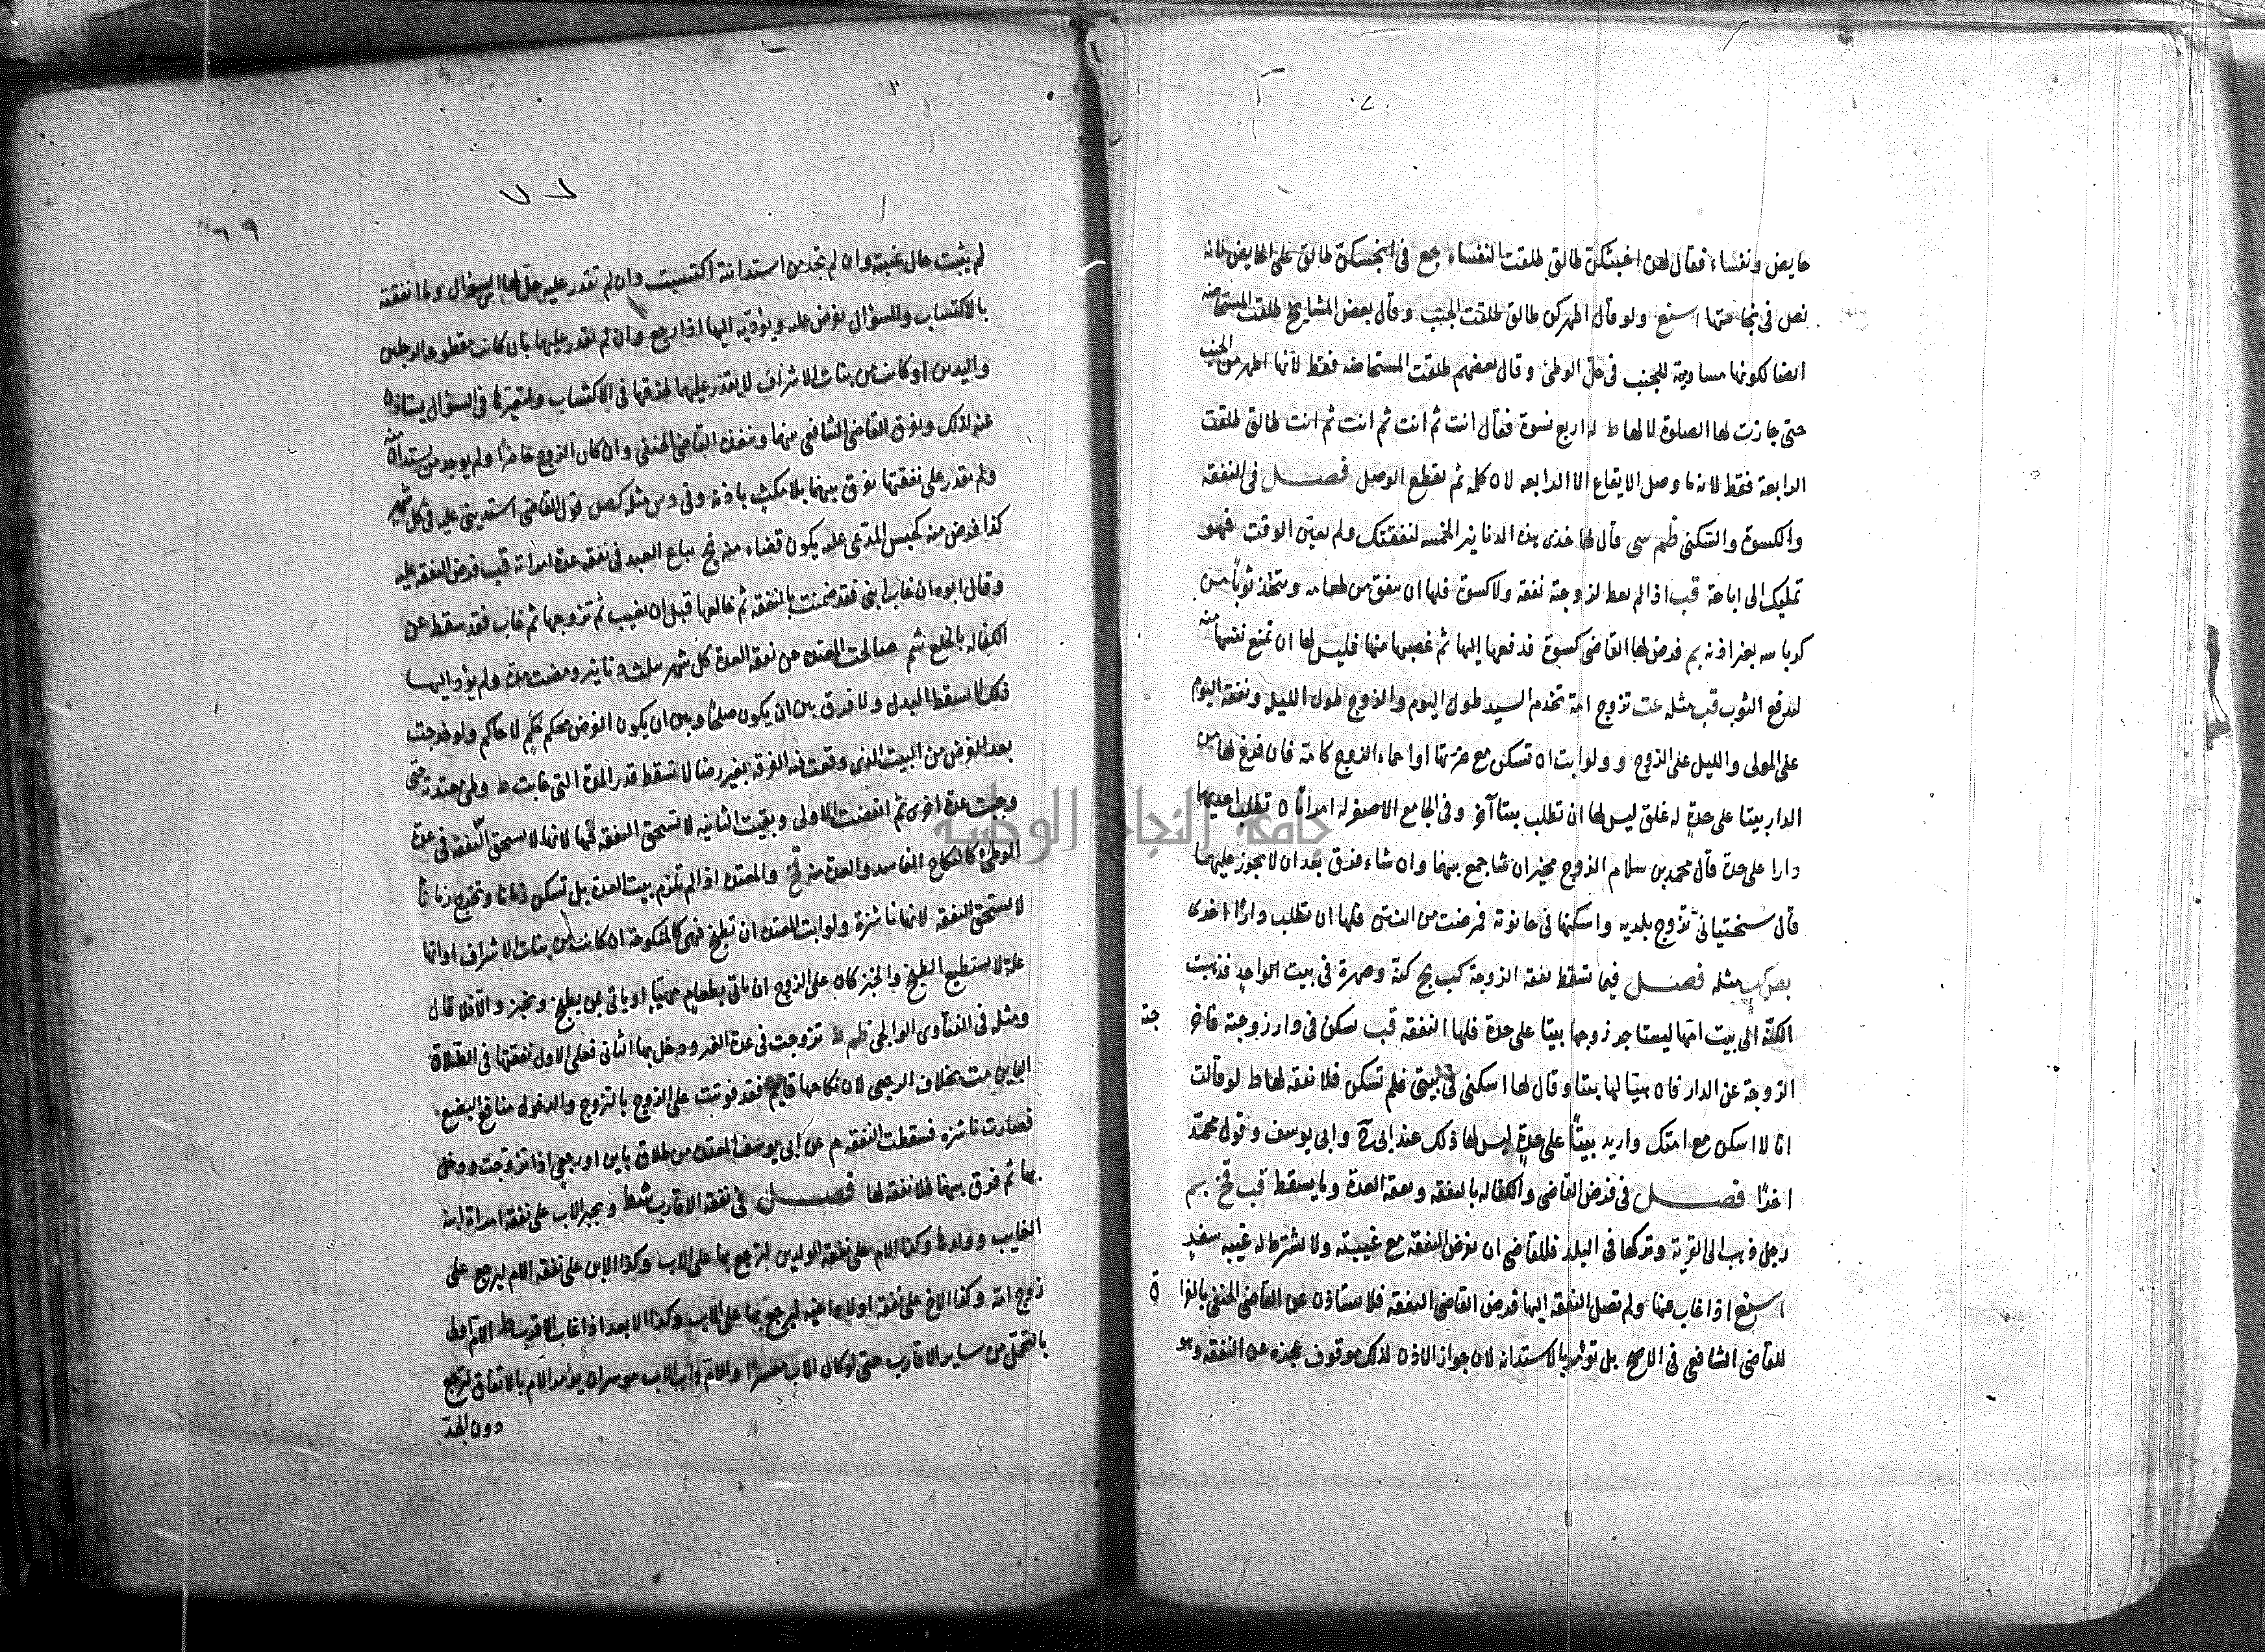 حايض ونفساء فقال لهن اخبثكن طالق طلقت النفساء جمع فى انجسكن طالق على الحايض لانه
نص فى نجاستها اسنع ولو قال اطهركن طالق طلقت الجنب وقال بعض المشايخ طلقت المستحاضه
ايضا لكونها مساوية للجنب فى حل الوطئ وقال بعضهم طلقت المستحاضه فقط لانها اطهر من الجنب
حتى جازت لها الصلوة لا لها ط له اربع نسوة فقال انت ثم انت ثم انت ثم انت طالق طلقت
الرابعة فقط لانه ما وصل الايقاع الا الرابعه لان كلمة ثم لقطع الوصل فصل فى النفقة
والكسوة والسكنى ظم سى قال لها خذى هذه الدنانير الخمسه لنفقتك ولم يعين الوقت فهو
تمليك الى اباحة قب اذا لم يعط لزوجته نفقه ولا كسوة فلها ان تنفق من طعامه وتتخذ ثوبا من
كرباسه بغير اذنه بم فرض لها القاضى كسوة فدفعها اليها ثم غصبها منها فليس لها ان تمنع نفسها منه
لدفع الثوب قب مثله عت تزوج امة تخدم السيد طول اليوم والزوج طول الليل ونفقة اليوم
على المولى والليل على الزوج ولو ابت ان تسكن مع ضرتها او احماء الزوج كامه فان فرغ لها من
الدار بيتا على حدة له غلق ليس لها ان تطلب بيتا آخر وفى الجامع الاصغر له امراتان تطلب احديهما
دارا على حدة قال محمد بن سلام الزوج مخير ان شا جمع بينهما وان شاء فرق بعد ان لا يجوز عليهما
قال سختيانى تزوج بلديه واسكنها فى حانوته فمرضت من النتن فلها ان تطلب دارا اخرى
مثله فصل فيما تسقط نفقة الزوجة كب بح كنة وصهرة فى بيت الواحد فذهبت
الكنة الى بيت امها ليستاجر زوجها بيتا على حدة فلها النفقه قب سكن فى دار زوجته
الزوجة عن الدار فان هيا لها بيتا وقال لها اسكنى فى بيتى فلم تسكن فلا نفقه لها ط لو قالت
انا لا اسكن مع امتك واريد بيتا على حدة ليس لها ذلك عند ابى ح وابى يوسف وقول محمد
اخرا فصل فى فرض القاضى والكفاله بالنفقه ونفقه العدة وما يسقط قب قخ بم
رجل ذهب الى القرية وتركها فى البلد فللقاضى ان يفرض النفقه مع غيبته ولا يشترط له غيبه سفر
اسنع اذا غاب عنها ولم تصل النفقه اليها فرض القاضى النفقه فلا يستاذن عن القاضى الحنفى
للقاضى الشافعى فى الاصح بل تؤمر بالاستدانه لان جواز الاذن لذلك موقوف عجزه عن النفقه وهو
لم يثبت حال غيبته وان لم تجد من استدانة اكتسبت وان لم تقدر عليه حل لها السؤال وما نفقته
بالاكتساب والسؤال يفرض عليه ويؤديه اليها اذا رجع وان لم تقدر عليهما بان كانت مقطوعه الرجلين
واليدين او كانت من بنات الاشراف لا يقدر عليهما فى الاكتساب فى السؤال يستاذن
عنه لذلك ويفرق القاضى الشافعى بينهما وينفذه القاضى الحنفى وان كان الزوج حاضرا ولم يوجد من يستدان منه
ولم يقدر على نفقتها يفرق بينهما بلا مكث باذنه وفى وس مثله كص قول القاضى استدينى عليه فى كل شهر
كذا فرض منه كحبس المدعى عليه يكون قضاء منه نج يباع العبد فى نفقه عدة امراته قب فرض النفقه عليه
وقال ابوه ان غاب ابنى فقد ضمنت بالنفقه ثم خالعها قبل ان يغيب ثم تزوجها ثم غاب فقد سقط عن
الكفاله بالخلع شم صالحت المعتده عن نفقه العدة كل شهر ثلث دنانير ومضت مدة ولم يؤد اليها
فلا يسقط البدل ولا فرق بين ان يكون صلحا وبين ان يكون الفرض محكم لا حاكم ولو خرجت
بعد الفرض من البيت الذى وقعت فيه الفرقه بغير رضا لا تسقط قدر المدة التى غابت ط وطئ معتدته حتى
وجبت عدة اخرى ثم انقضت الاولى وبقيت الثانيه لا تستحق النفقه لانها لا تستحق النفقه فى عدة
الوطئ كالنكاح الفاسد والعدة منه قخ والمعتده اذا لم تلزم بيت العدة بل تسكن زمانا وتخرج زمانا
لا تستحق النفقه لانها ناشزة ولو ابت المعتده ان تطبخ فهى كالمنكوحة ان كانت من بنات الاشراف او انها
علة لا تستطيع الطبخ والخبز كان على الزوج ان ياتى بطعام مهيا او ياتى بمن يطبخ ويخبز والا فلا قال
ومثله فى الفتاوى ظم ط تزوجت فى عدة الغير ودخل بها الثانى فعلى الاول نفقتها فى الطلاق
الباين عت بخلاف الرجعى لان نكاحها قايم فقد فوتت على الزوج بالتزوج والدخول منافع البضع
فصارت ناشزه فسقطت النفقه م عن ابى يوسف المعتده من طلاق باين او رجعى اذا تزوجت ودخل
بها ثم فرق بينهما فلا نفقه لها فصل فى نفقه الاقارب شط ويجبر الاب على نفقه امراة ابنه
الغايب وولدها وكذا الام على نفقه الولدين لترجع بها على الاب وكذا الابن على نفقه الام ليرجع على
زوج امه وكذا الاخ على نفقه اولاد اخيه ليرجع بها على الاب وكذا الابعد اذا غاب الاقرب ط الام اولى
بالتحمل من ساير الاقارب حتى لو كان الاب معسرا والام واب الاب موسران يؤمر الام بالانفاق لترجع
دون الجد